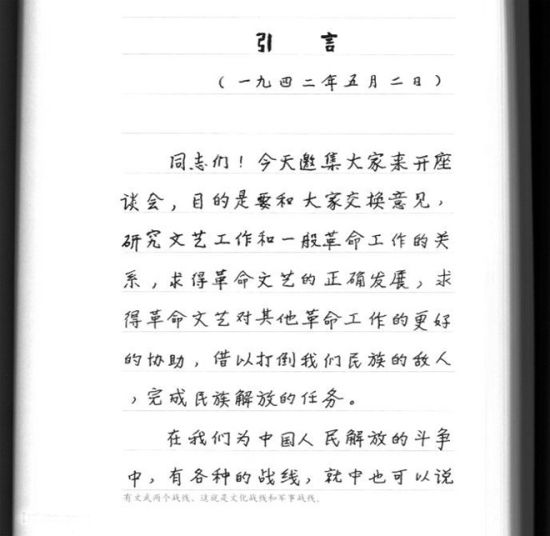 引 言
（一九四二年五月二日）
同志们！今天邀集大家来开座
谈会，目的是要和大家交换意见，
研究文艺工作和一般革命工作的关
系，求得革命文艺的正确发展，求
得革命文艺对其他革命工作的更好
的协助，借以打倒我们民族的敌人
，完成民族解放的任务。
在我们为中国人民解放的斗争
中，有各种的战线，就中也可以说
有文武两个战线，这就是文化战线和军事战线。